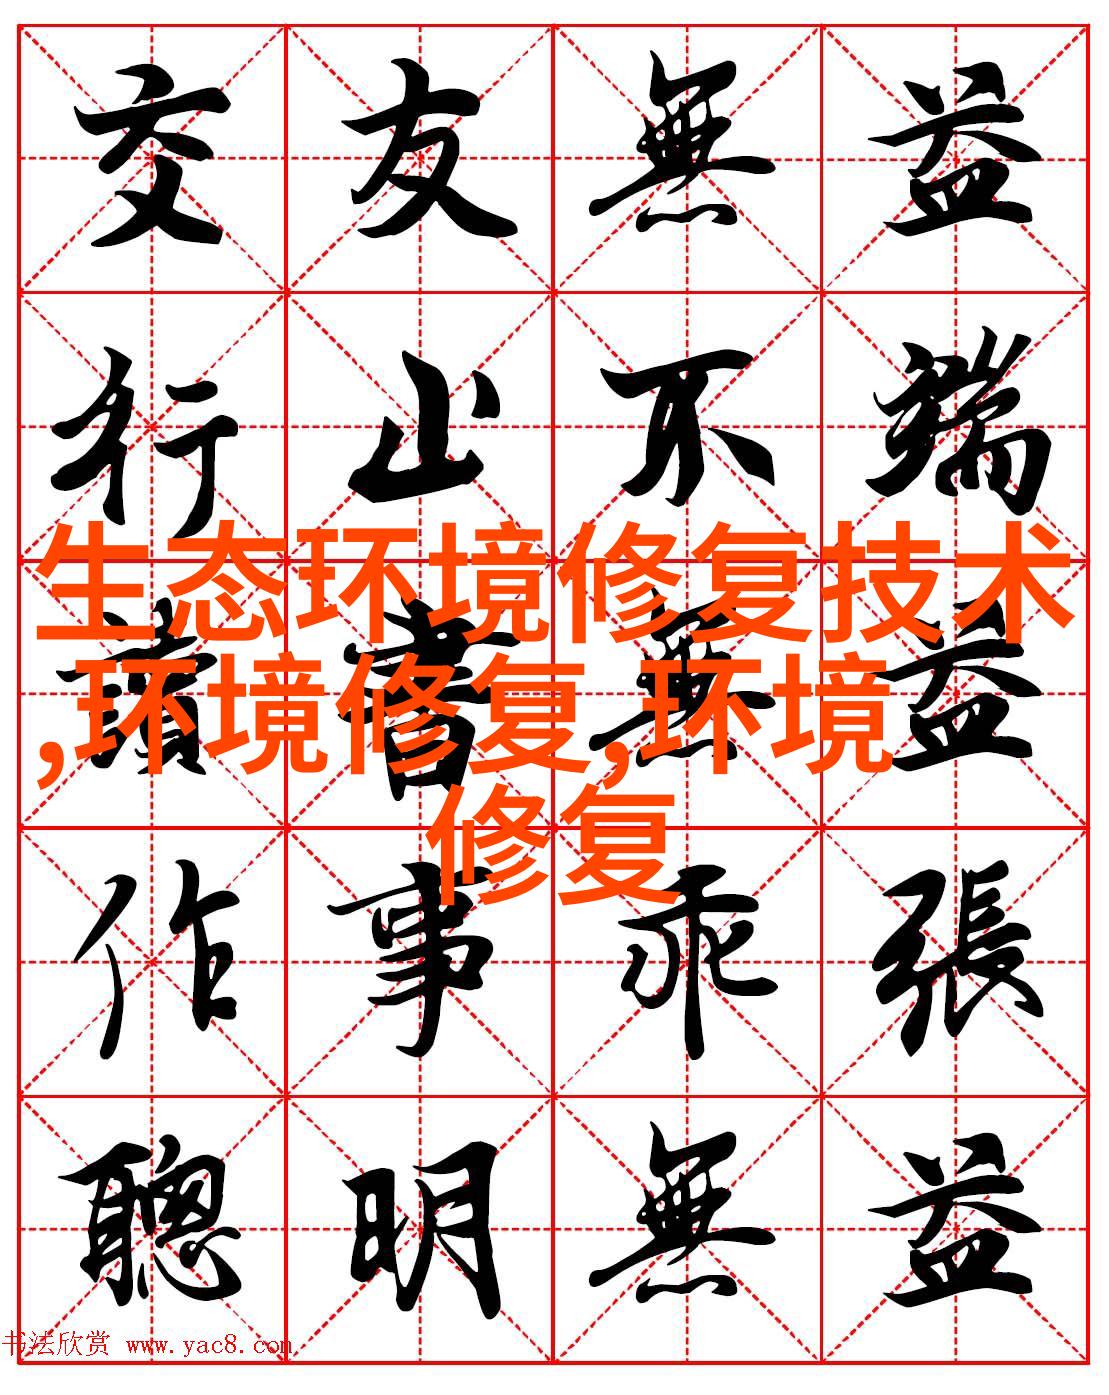 交友無益
行止不端
生态环境修复技术
,环境修复,环境
修复
讀書無益
作事乖張
聰明無益
书法欣赏 www.yac8.com